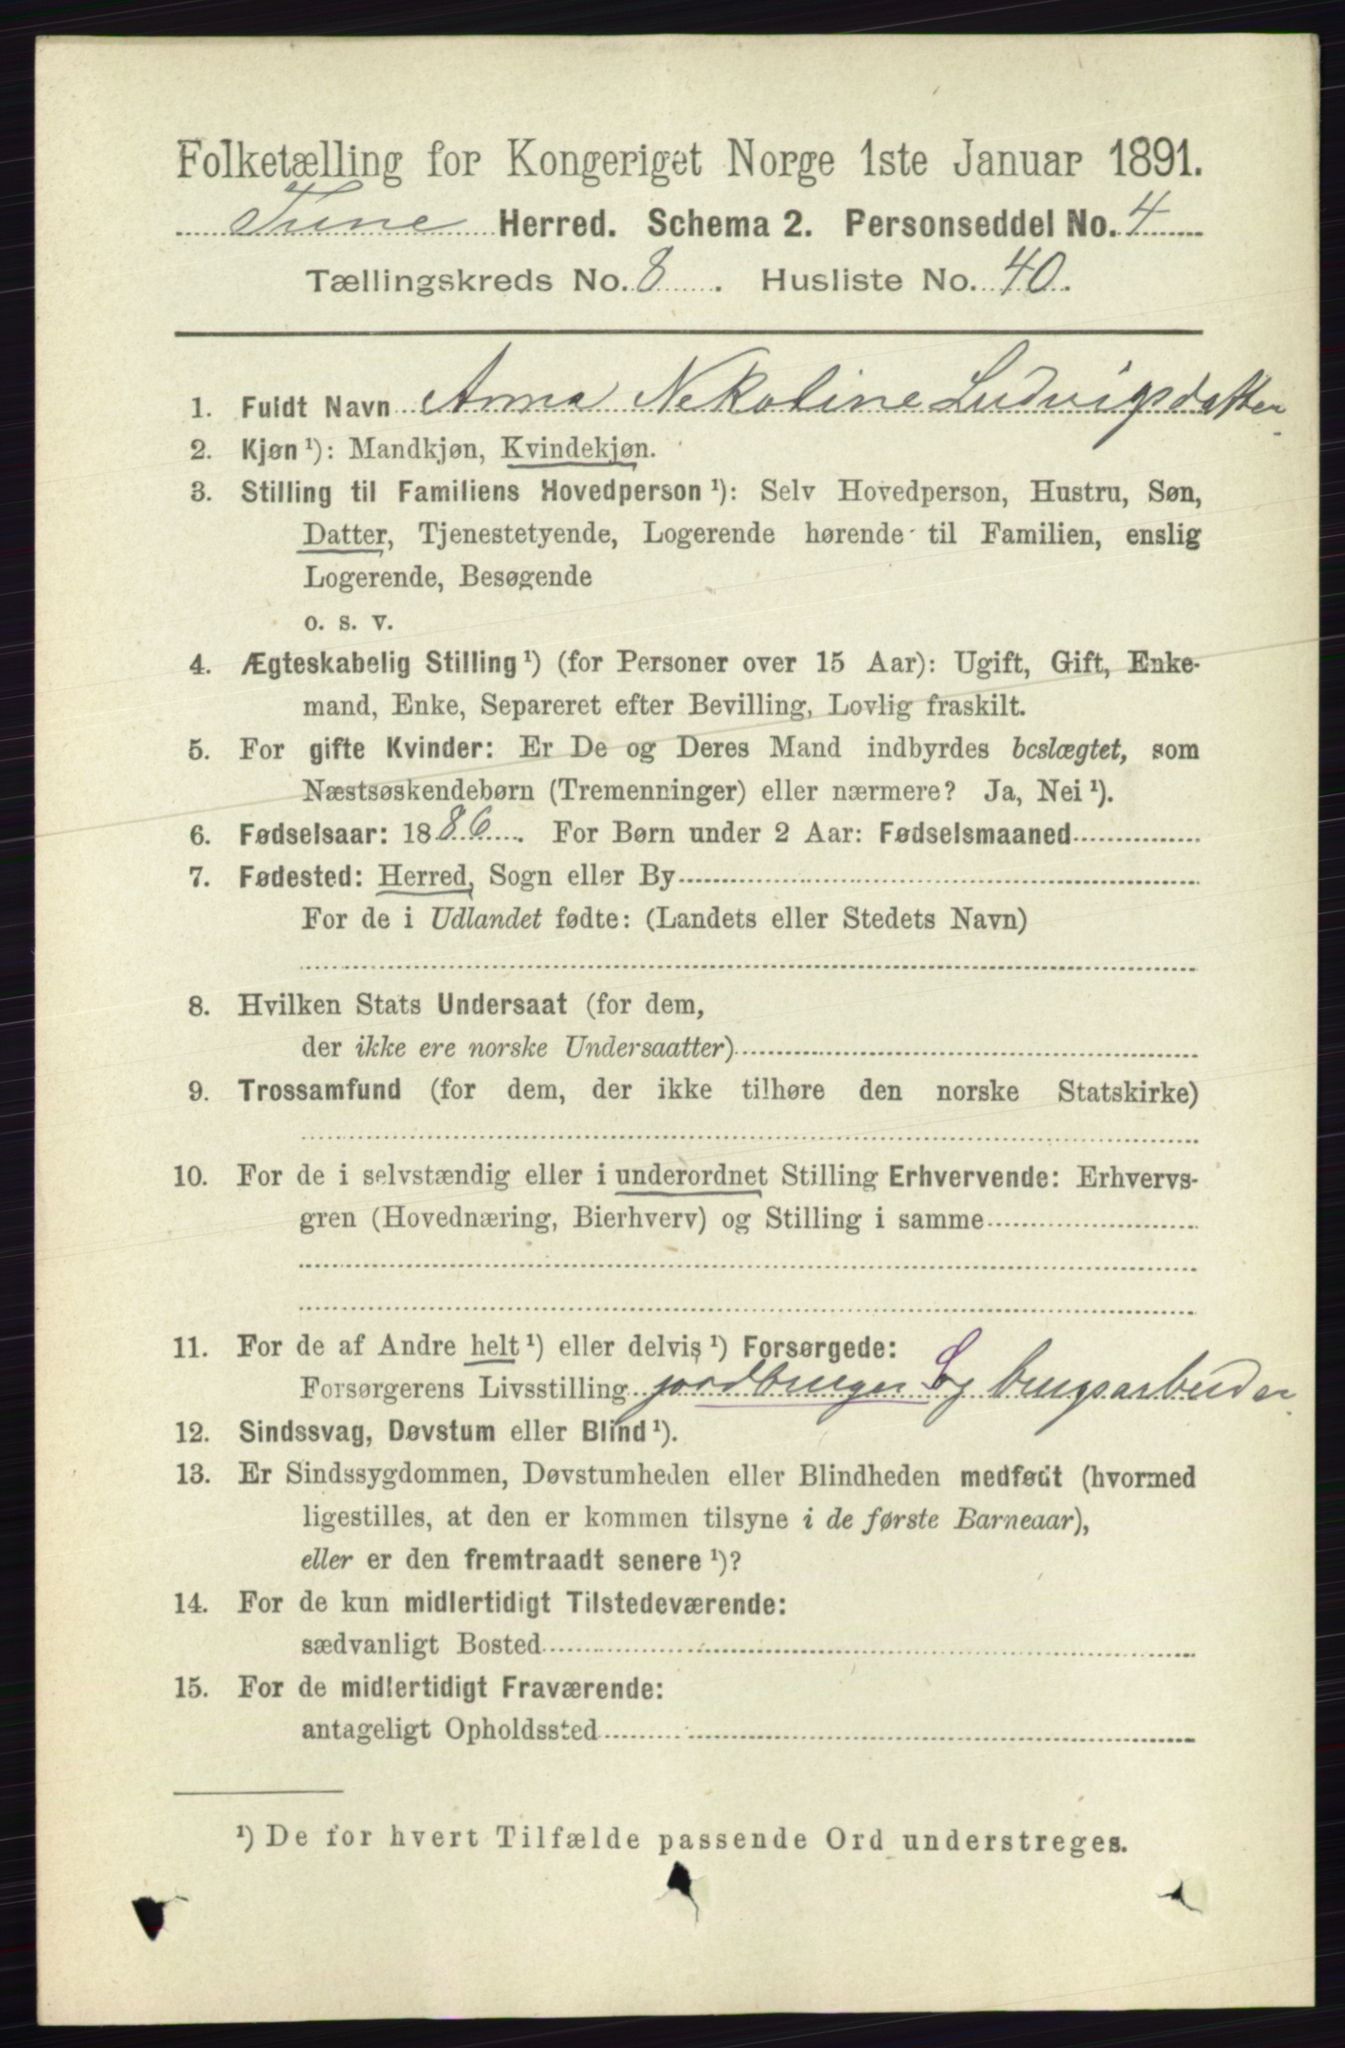 Folketælling for Kongeriget Norge 1ste Januar 1891.
Tune Herred. Schema 2. Personseddel No. 4
Tællingskreds No. 8. Husliste No. 40.
1. Fuldt Navn Anna Nekoline Ludvigsdatter
2. Kjøn¹): Mandkjøn, Kvindekjøn.
3. Stilling til Familiens Hovedperson¹): Selv Hovedperson, Hustru, Søn,
Datter, Tjenestetyende, Logerende hørende til Familien, enslig
Logerende, Besøgende
o. s. v.
4. Ægteskabelig Stilling¹) (for Personer over 15 Aar): Ugift, Gift, Enke-
mand, Enke, Separeret efter Bevilling, Lovlig fraskilt.
5. For gifte Kvinder: Er De og Deres Mand indbyrdes beslægtet, som
Næstsøskendebørn (Tremenninger) eller nærmere? Ja, Nei¹).
6. Fødselsaar: 1886. For Børn under 2 Aar: Fødselsmaaned
7. Fødested: Herred, Sogn eller By
For de i Udlandet fødte: (Landets eller Stedets Navn)
8. Hvilken Stats Undersaat (for dem,
der ikke ere norske Undersaatter)
9. Trossamfund (for dem, der ikke tilhøre den norske Statskirke)
10. For de i selvstændig eller i underordnet Stilling Erhvervende: Erhvervs-
gren (Hovednæring, Bierhverv) og Stilling i samme
11. For de af Andre helt¹) eller delvis¹) Forsørgede:
Forsørgerens Livsstilling jordbruger og brugsarbeider
12. Sindssvag, Døvstum eller Blind¹).
13. Er Sindssygdommen, Døvstumheden eller Blindheden medfødt (hvormed
ligestilles, at den er kommen tilsyne i de første Barneaar),
eller er den fremtraadt senere¹)?
14. For de kun midlertidigt Tilstedeværende:
sædvanligt Bosted
15. For de midlertidigt Fraværende:
antageligt Opholdssted
¹) De for hvert Tilfælde passende Ord understreges.